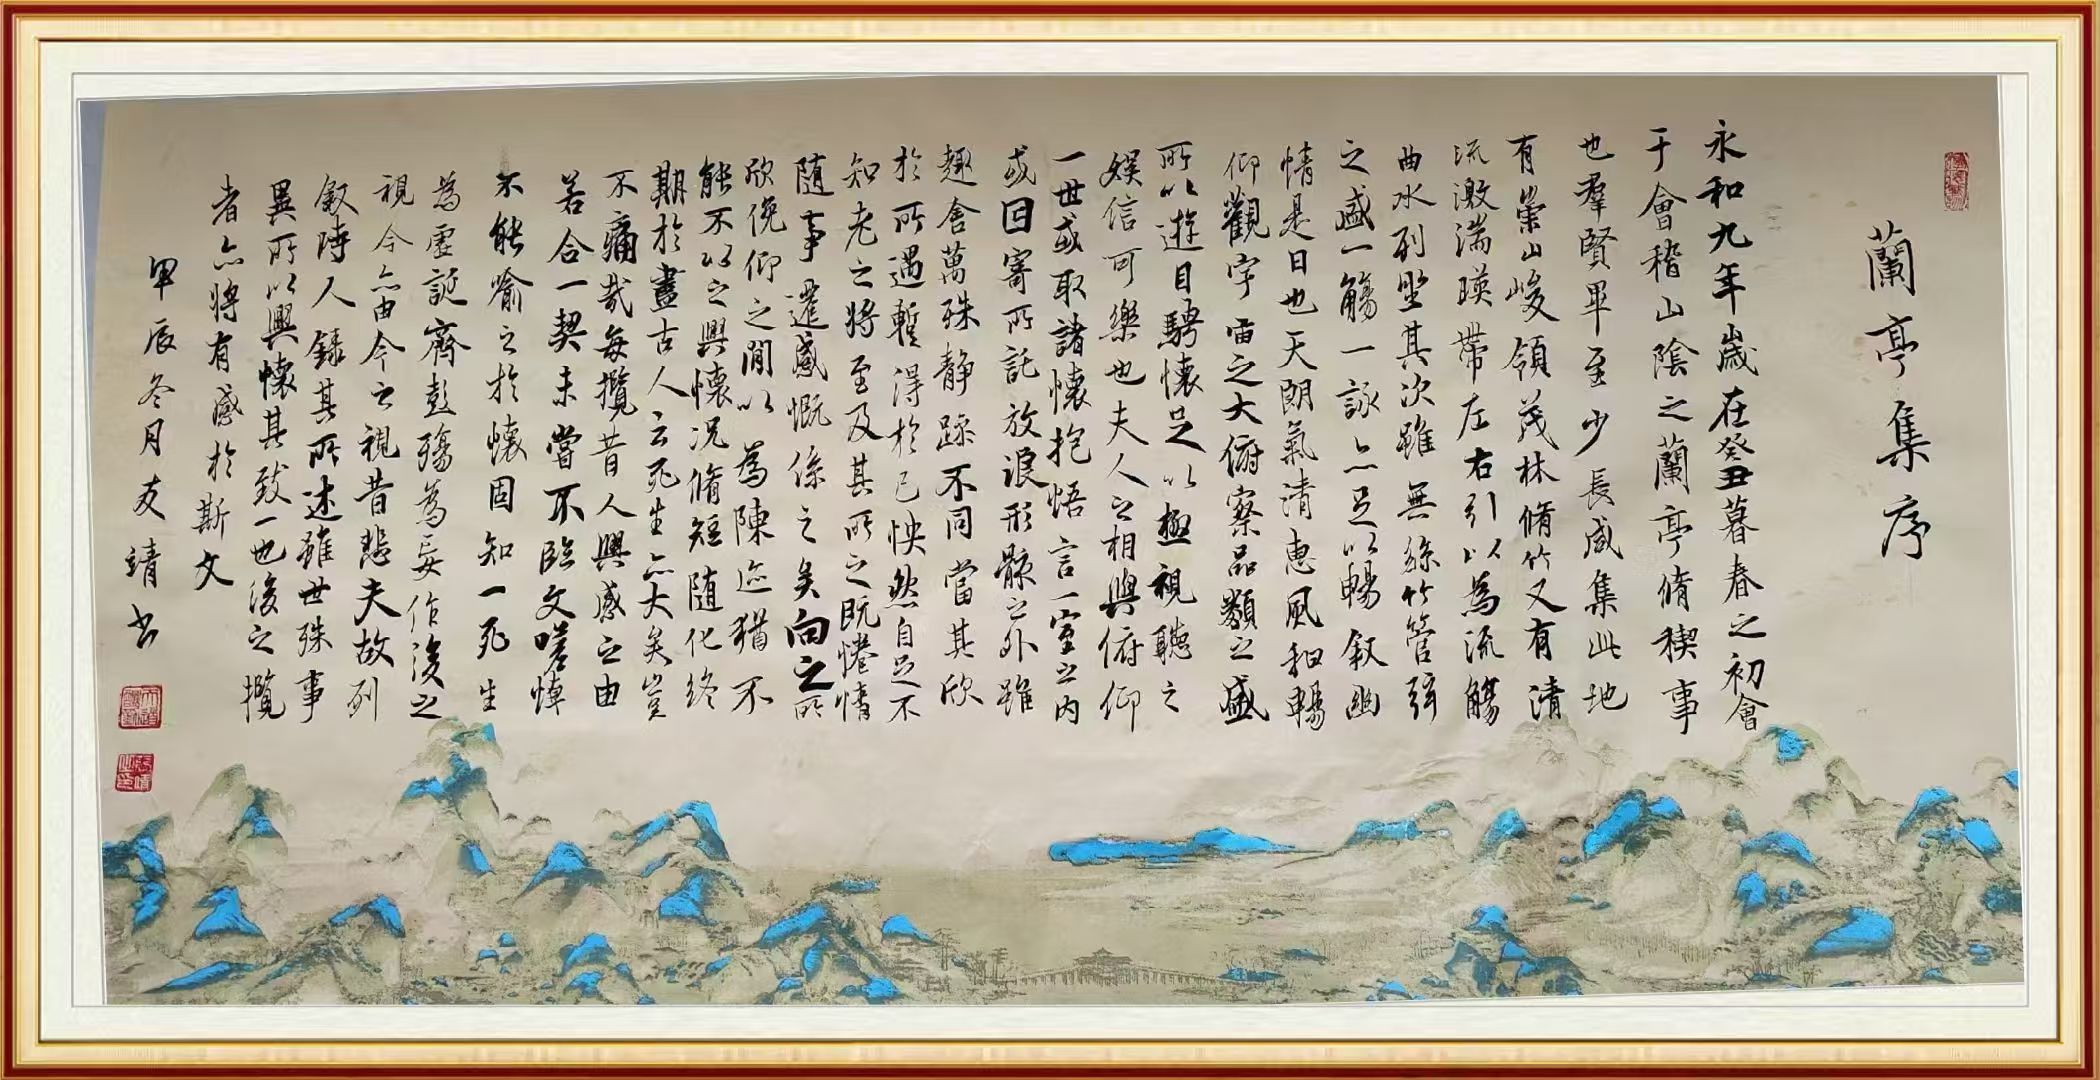 蘭亭集序
永和九年歲在癸丑暮春之初會
于會稽山陰之蘭亭脩稧事
也羣賢畢至少長咸集此地
有崇山峻領茂林脩竹又有清
流激湍暎帶左右引以為流觴
曲水列坐其次雖無絲竹管弦
之盛一觴一詠亦足以暢敘幽
情是日也天朗氣清惠風和暢
仰觀宇宙之大俯察品類之盛
所以遊目騁懷足以極視聽之
娛信可樂也夫人之相與俯仰
一世或取諸懷抱悟言一室之內
或因寄所託放浪形骸之外雖
趣舍萬殊静躁不同當其欣
於所遇暫得於己怏然自足不
知老之將至及其所之既惓情
随事遷感慨係之矣向之所
欣俛仰之閒以為陳迹猶不
能不以之興懷況脩短随化終
期於盡古人云死生亦大矣豈
不痛哉每攬昔人興感之由
若合一契未嘗不臨文嗟悼
不能喻之於懷固知一死生
為虛誕齊彭殤為妄作後之
視今亦由今之視昔悲夫故列
敘時人錄其所述雖世殊事
異所以興懷其致一也後之攬
者亦將有感於斯文
甲辰冬月友靖书